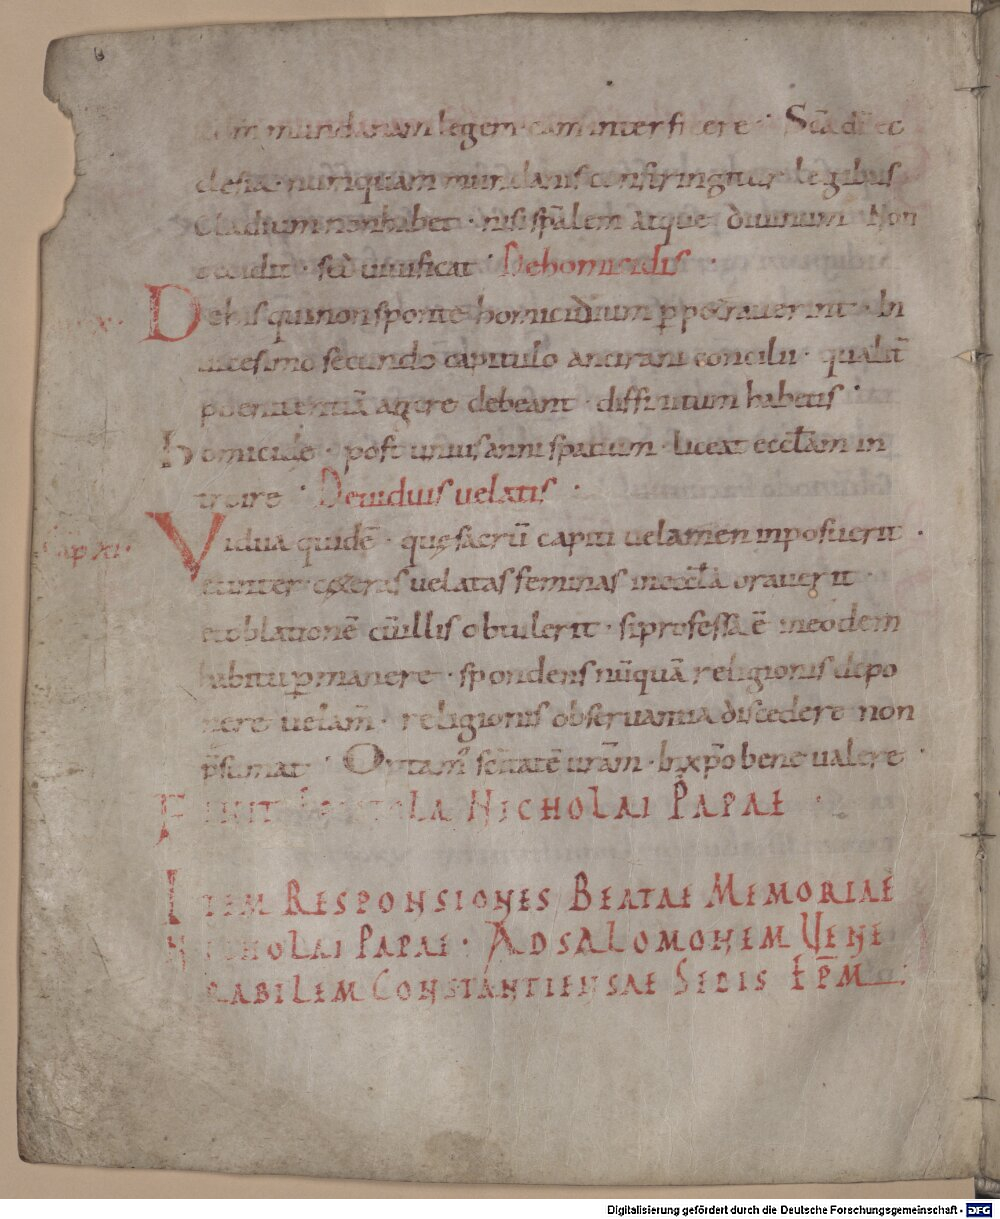 mundanam legem · eam interficere · Sc̄a dī ec
clesia · numquam mundanis constringitur legibus
Gladium non habet · nisi sp̄alem atque divinum · Non
occidit · sed uiuificat · De homicidis ·
De his qui non sponte homicidium ꝑpetrauerint · In
uicesimo secundo capitulo ancirani concilii · qualit̄
poenitentiā agere debeant · diffinitum habetis ·
homicide · post unius anni spatium · liceat eccl̄am in
troire · De uiduis uelatis ·
Cap XI ·
Vidua quidē · quę sacrū capiti uelamen inposuerit ·
et inter ceteras uelatas feminas in eccl̄a orauerit ·
et oblationē cū illis obtulerit · si professa ē in eodem
habitu ꝑmanere · spondens nūquā religionis depo
nere uelam̄ · religionis obseruantia discedere non
p̄sumat · Optam᾽ sc̄itatē ur̄am · In xp̄o bene ualere ·
FINIT EPISTOLA NICHOLAI PAPAE ·
ITEM RESPONSIONES BEATAE MEMORIAE
NICHOLAI PAPAE · AD SALOMONEM VENE
RABILEM CONSTANTIENSAE SEDIS EP̄M :
Digitalisierung gefördert durch die Deutsche Forschungsgemeinschaft - DFG